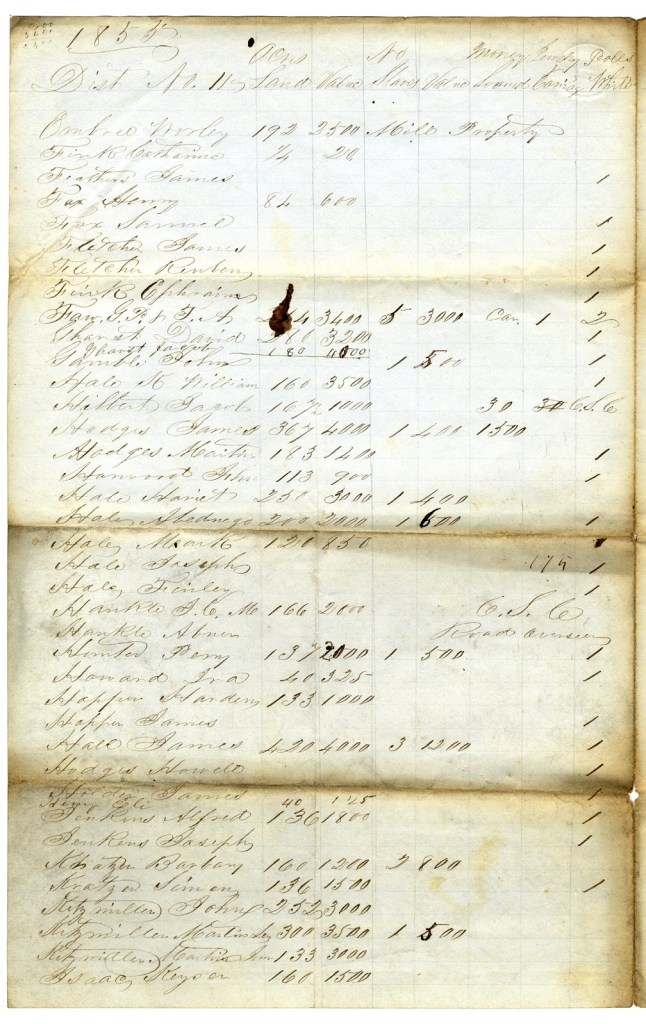 1855
Acres No Money Poolls
Dist No. 11 Land Value Slaves Value Loaned White
Embree Worley 192 2500 Mill Property
Fink Catharine 20
Feathers James 1
Fox Henry 84 600
Fox Samuel 1
Fletcher James 1
Fletcher Reuben 1
Fink Ephraim 1
Faw 3400 5 3000 Car. 1 2
David 3200 1
Jacob 180 4000
Gamble John 1 500 1
Hale M William 160 3500 1
Hilbert Jacob 1000 30 C.S.C
Hodges James 367 4000 1 400 1500
Hodges Martin 183 1400 1
113 900 1
Hale Hariet 250 3000 1 400
Hale Abednego 200 2000 1 600 1
Hale Mark 120 850
Hale Joseph 175 1
Hale Finley 1
Hankle J. C. M 166 2000 C. S. C
Hankle Abner Road overseer
Hunter Perry 137 1 500 1
Howard Ira 40 325 1
Happer Hardeny 133 1000
Happer James 1
Hale James 420 4000 3 1200 1
Hodges Howell 1
James 1
Henry Eli 40
Jenkins Alfred 136 1800 1
Jenkins Joseph 1
Kratzer Barbary 160 1200 2 800
Kratzer Simon 136 1500 1
Kitzmiller John 252 3000
Kitzmiller Martin 300 3500 1 500
Kitzmiller Martin Jun 133 3000
Isaac Keyser 160 1500